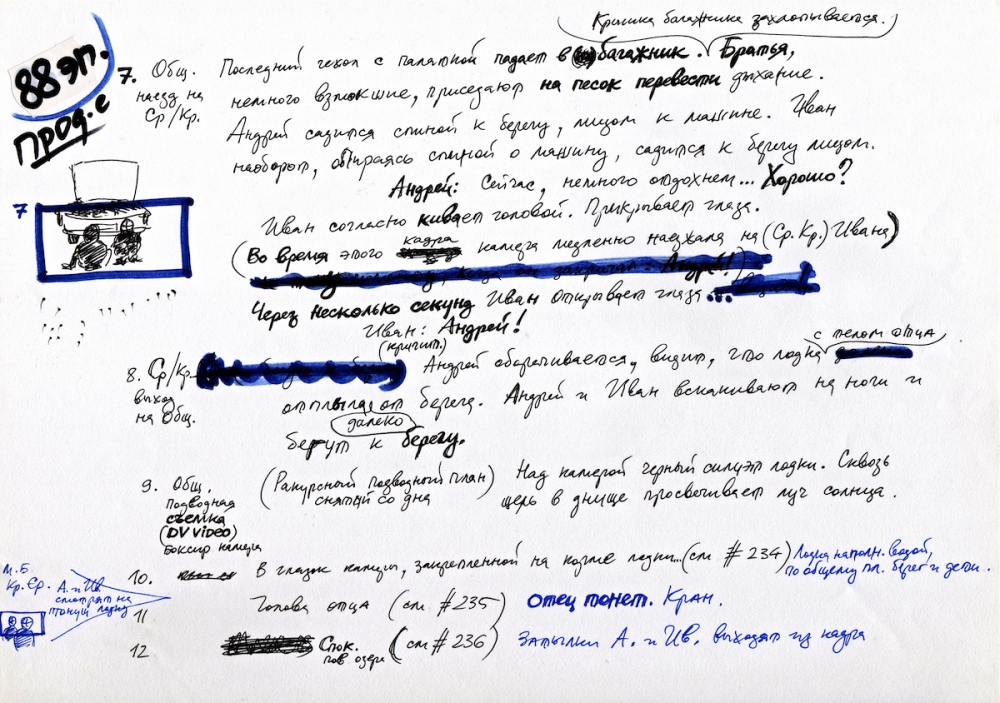 Крышка багажника захлопывается.
88 эп.
прод-е
7. Общ. Последний чехол с палаткой падает в багажник. Братья,
наезд на немного взмокшие, приседают на песок перевести дыхание.
Ср/Кр. Андрей садится спиной к берегу, лицом к машине. Иван
наоборот, опираясь спиной о машину, садится к берегу лицом.
Андрей: Сейчас, немного отдохнем... Хорошо?
7
Иван согласно кивает головой. Прикрывает глаза.
(Во время этого кадра камера медленно наезжала на (Ср. Кр.) Ивана)
Через несколько секунд Иван открывает глаза...
Иван: Андрей!
(кричит.)
с телом отца
8. Ср/Кр. Андрей оборачивается, видит, что лодка
выход отплыла от берега. Андрей и Иван вскакивают на ноги и
на Общ. далеко
бегут к берегу.
9. Общ. (Ракурсный подводный план) Над камерой черный силуэт лодки. Сквозь
Подводная снятый со дна щель в днище просвечивает луч солнца.
съемка
(DV video)
Боксир камера
10. В глазок камеры, закрепленной на корме лодки...(см #234) Лодка наполн. водой,
по общему пл. берег и дети.
М.Б.
Кр. Ср. А. и Ив
смотрят на
тонущ лодку
11 Голова отца (см #235) Отец тонет. Кран.
12 Спок. (см #236) Затылки А. и Ив. выходят из кадра
пов озера